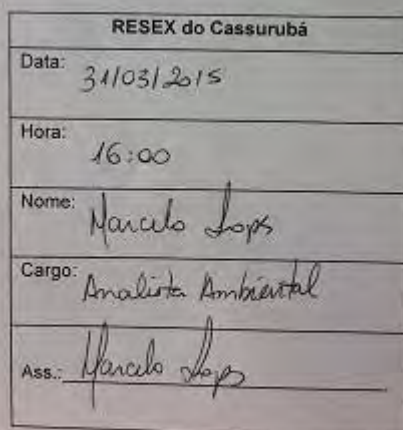 RESEX do Cassurubá
Data: 31/03/2015
Hora: 16:00
Nome: Marcelo Lopes
Cargo: Analista Ambiental
Ass.: Marcelo Lopes